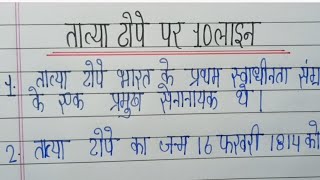 तात्या टोपे पर 10 लाइन
1. तात्या टोपे भारत के प्रथम स्वाधीनता संग्रा
के एक प्रमुख सेनानायक थे।
2. तात्या टोपे का जन्म 16 फरवरी 1814 को